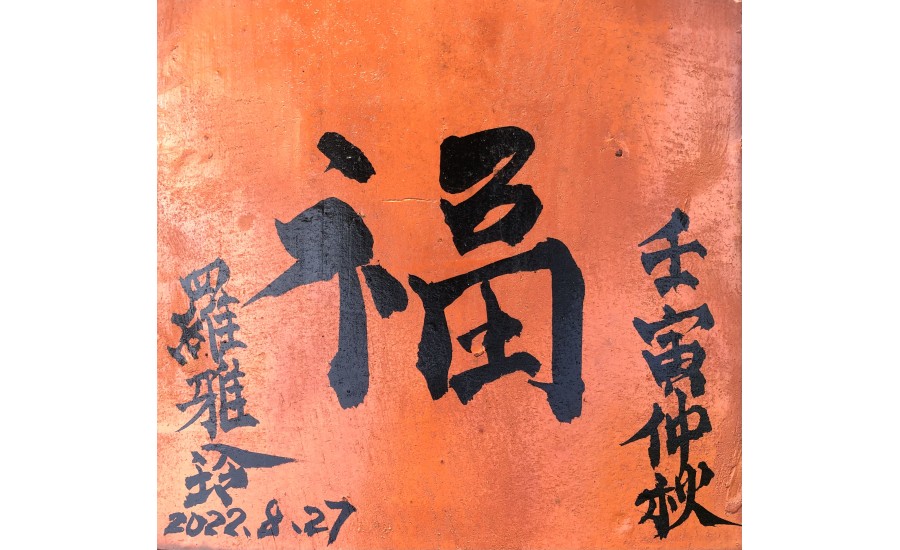 壬寅仲秋
福
羅雅玲
2022.8.27